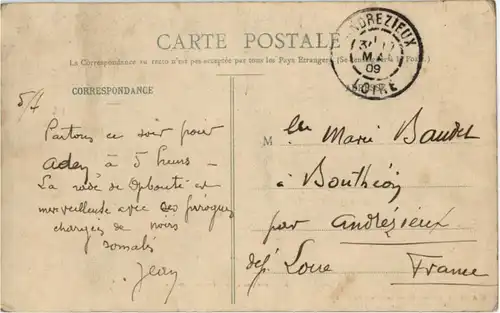 CARTE POSTALE
La Correspondance au recto n'est pas acceptée par tous les Pays Étrangers (Se renseigner à la Poste)
ANDREZIEUX
MAI
09
LOIRE
CORRESPONDANCE
Partons ce soir pour
Aden à 5 heures —
La rade de Djibouti est
merveilleuse avec ses pirogues
chargées de noirs
somalis
Jean
Mlle Marie Baudet
à Bouthéon
par Andrézieux
dép. Loire
France